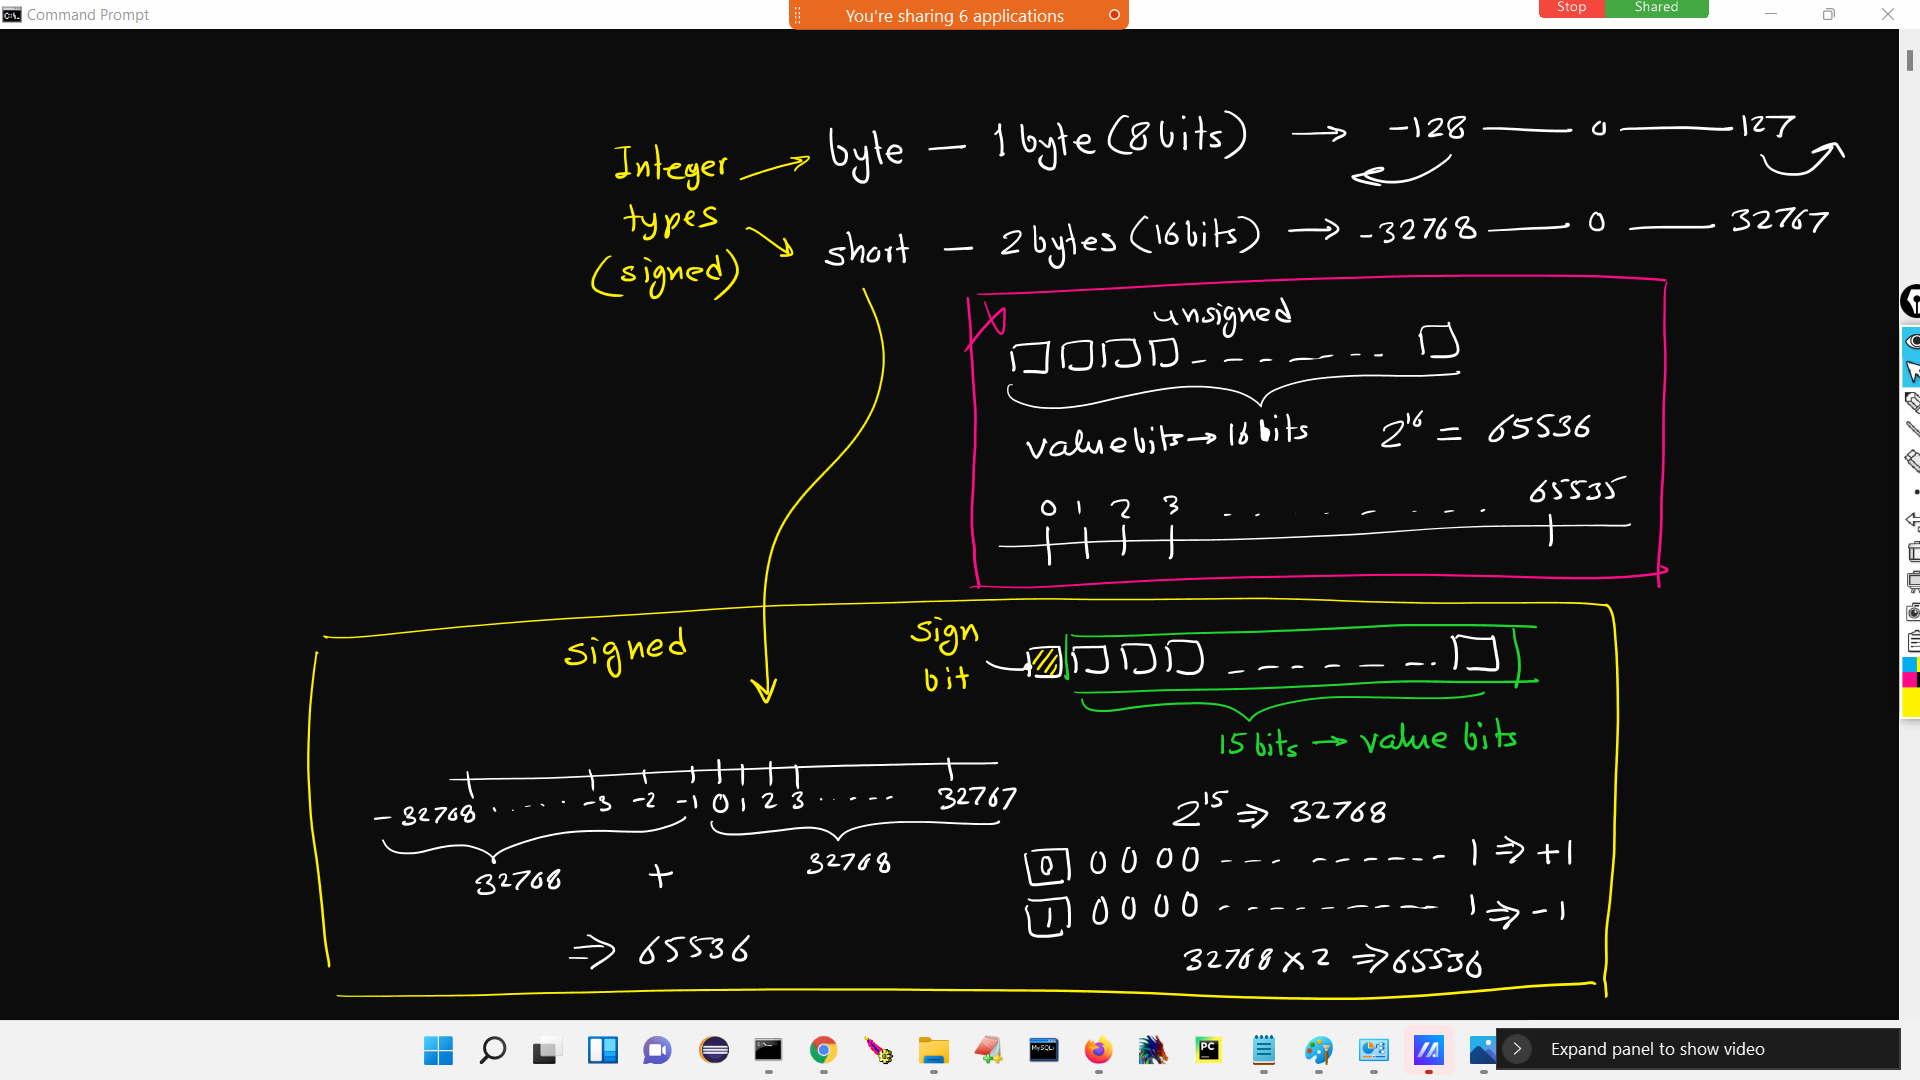 Command Prompt
You're sharing 6 applications
Stop
Shared
Integer types (signed)
byte — 1 byte (8 bits) → -128 — 0 — 127
short — 2 bytes (16 bits) → -32768 — 0 — 32767
unsigned
value bits → 16 bits 2^16 = 65536
0 1 2 3 - - - - - - - 65535
signed
sign bit
15 bits → value bits
-32768 ...... -3 -2 -1 0 1 2 3 ...... 32767
32768 + 32768
⇒ 65536
2^15 ⇒ 32768
0 0 0 0 0 --- ------- 1 ⇒ +1
1 0 0 0 0 ---------- 1 ⇒ -1
32768 x 2 ⇒ 65536
MySQL
PC
Expand panel to show video